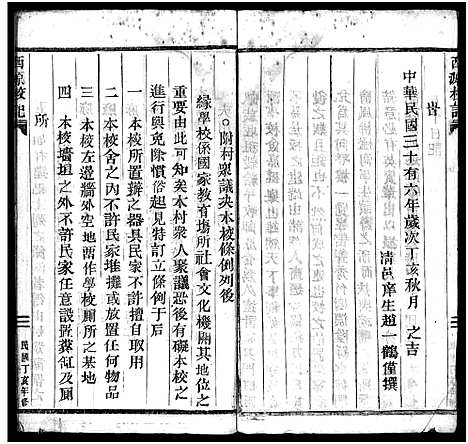 昔
中華民國三十有六年歲次丁亥秋月 之吉
清邑庠生趙一鶴僅撰
附村衆議决本校條例列後
緣學校係國家教育塲所社會文化機關其地位之
重要由此可知矣本村衆人聚議恐後有碍本校之
進行與免除慣俗起見特訂立條例于后
一 本校所置辦之器具民家不許擅自取用
二 本校舍之內不許民家堆攤或放置任何物品
三 本校左邊牆外空地畱作學校廁所之基地
四 本校墻垣之外不許民家任意設置糞缸及厠
所
西源校記
二
民國丁亥年修